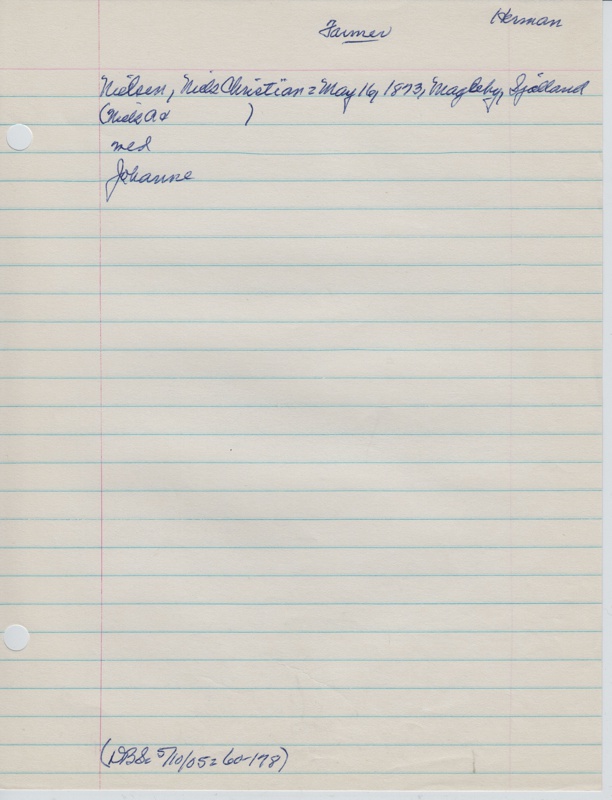 Herman
Farmer
Nielsen, Niels Christian = May 16, 1873, Magleby, Sjælland
(Niels A &          )
med
Johanne
(DBS: 5/10/05 = 60-178)